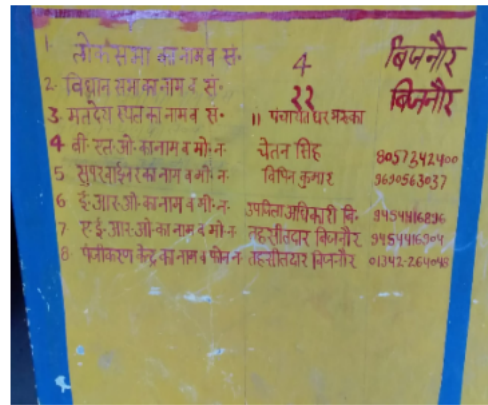 1. लोकसभा का नाम व सं॰ 4 बिजनौर
2. विधान सभा का नाम व सं॰ 22 बिजनौर
3 मतदेय स्थल का नाम व सं॰ 11 पंचायत घर मस्का
4 बी॰एल॰ओ॰ का नाम व मो॰ न॰ चेतन सिंह 8057342400
5 सुपरवाईजर का नाम व मो॰ न॰ विपिन कुमार 9690563037
6 ई॰आर॰ओ॰ का नाम व मो॰ न॰ उपजिलाअधिकारी बि॰ 9454416896
7 ए॰ई॰आर॰ओ॰ का नाम व मो॰ न॰ तहसीलदार बिजनौर 9454416904
8 पंजीकरण केन्द्र का नाम व फोन न॰ तहसीलदार बिजनौर 01342-264048